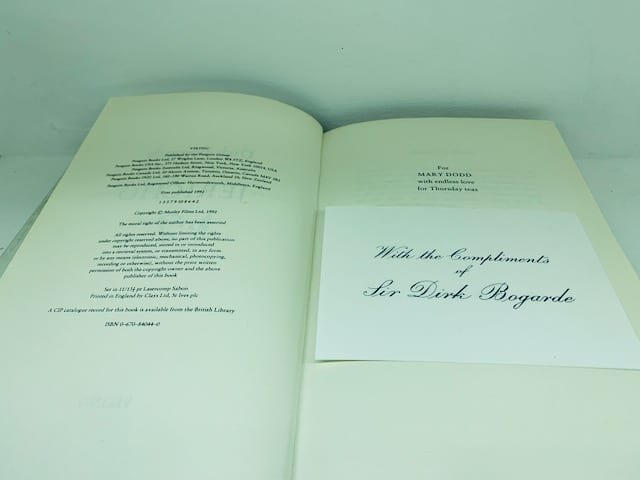 VIKING
Published by the Penguin Group
Penguin Books Ltd, 27 Wrights Lane, London W8 5TZ, England
Penguin Books USA Inc., 375 Hudson Street, New York, New York 10014, USA
Penguin Books Australia Ltd, Ringwood, Victoria, Australia
Penguin Books Canada Ltd, 10 Alcorn Avenue, Toronto, Ontario, Canada M4V 3B2
Penguin Books (NZ) Ltd, 182–190 Wairau Road, Auckland 10, New Zealand
Penguin Books Ltd, Registered Offices: Harmondsworth, Middlesex, England
First published 1992
1 3 5 7 9 10 8 6 4 2
Copyright © Motley Films Ltd, 1992
The moral right of the author has been asserted
All rights reserved. Without limiting the rights
under copyright reserved above, no part of this publication
may be reproduced, stored in or introduced
into a retrieval system, or transmitted, in any form
or by any means (electronic, mechanical, photocopying,
recording or otherwise), without the prior written
permission of both the copyright owner and the above
publisher of this book
Set in 11/13½ pt Lasercomp Sabon
Printed in England by Clays Ltd, St Ives plc
A CIP catalogue record for this book is available from the British Library
ISBN 0-670-84044-0
For
MARY DODD
with endless love
for Thursday teas
With the Compliments
of
Sir Dirk Bogarde